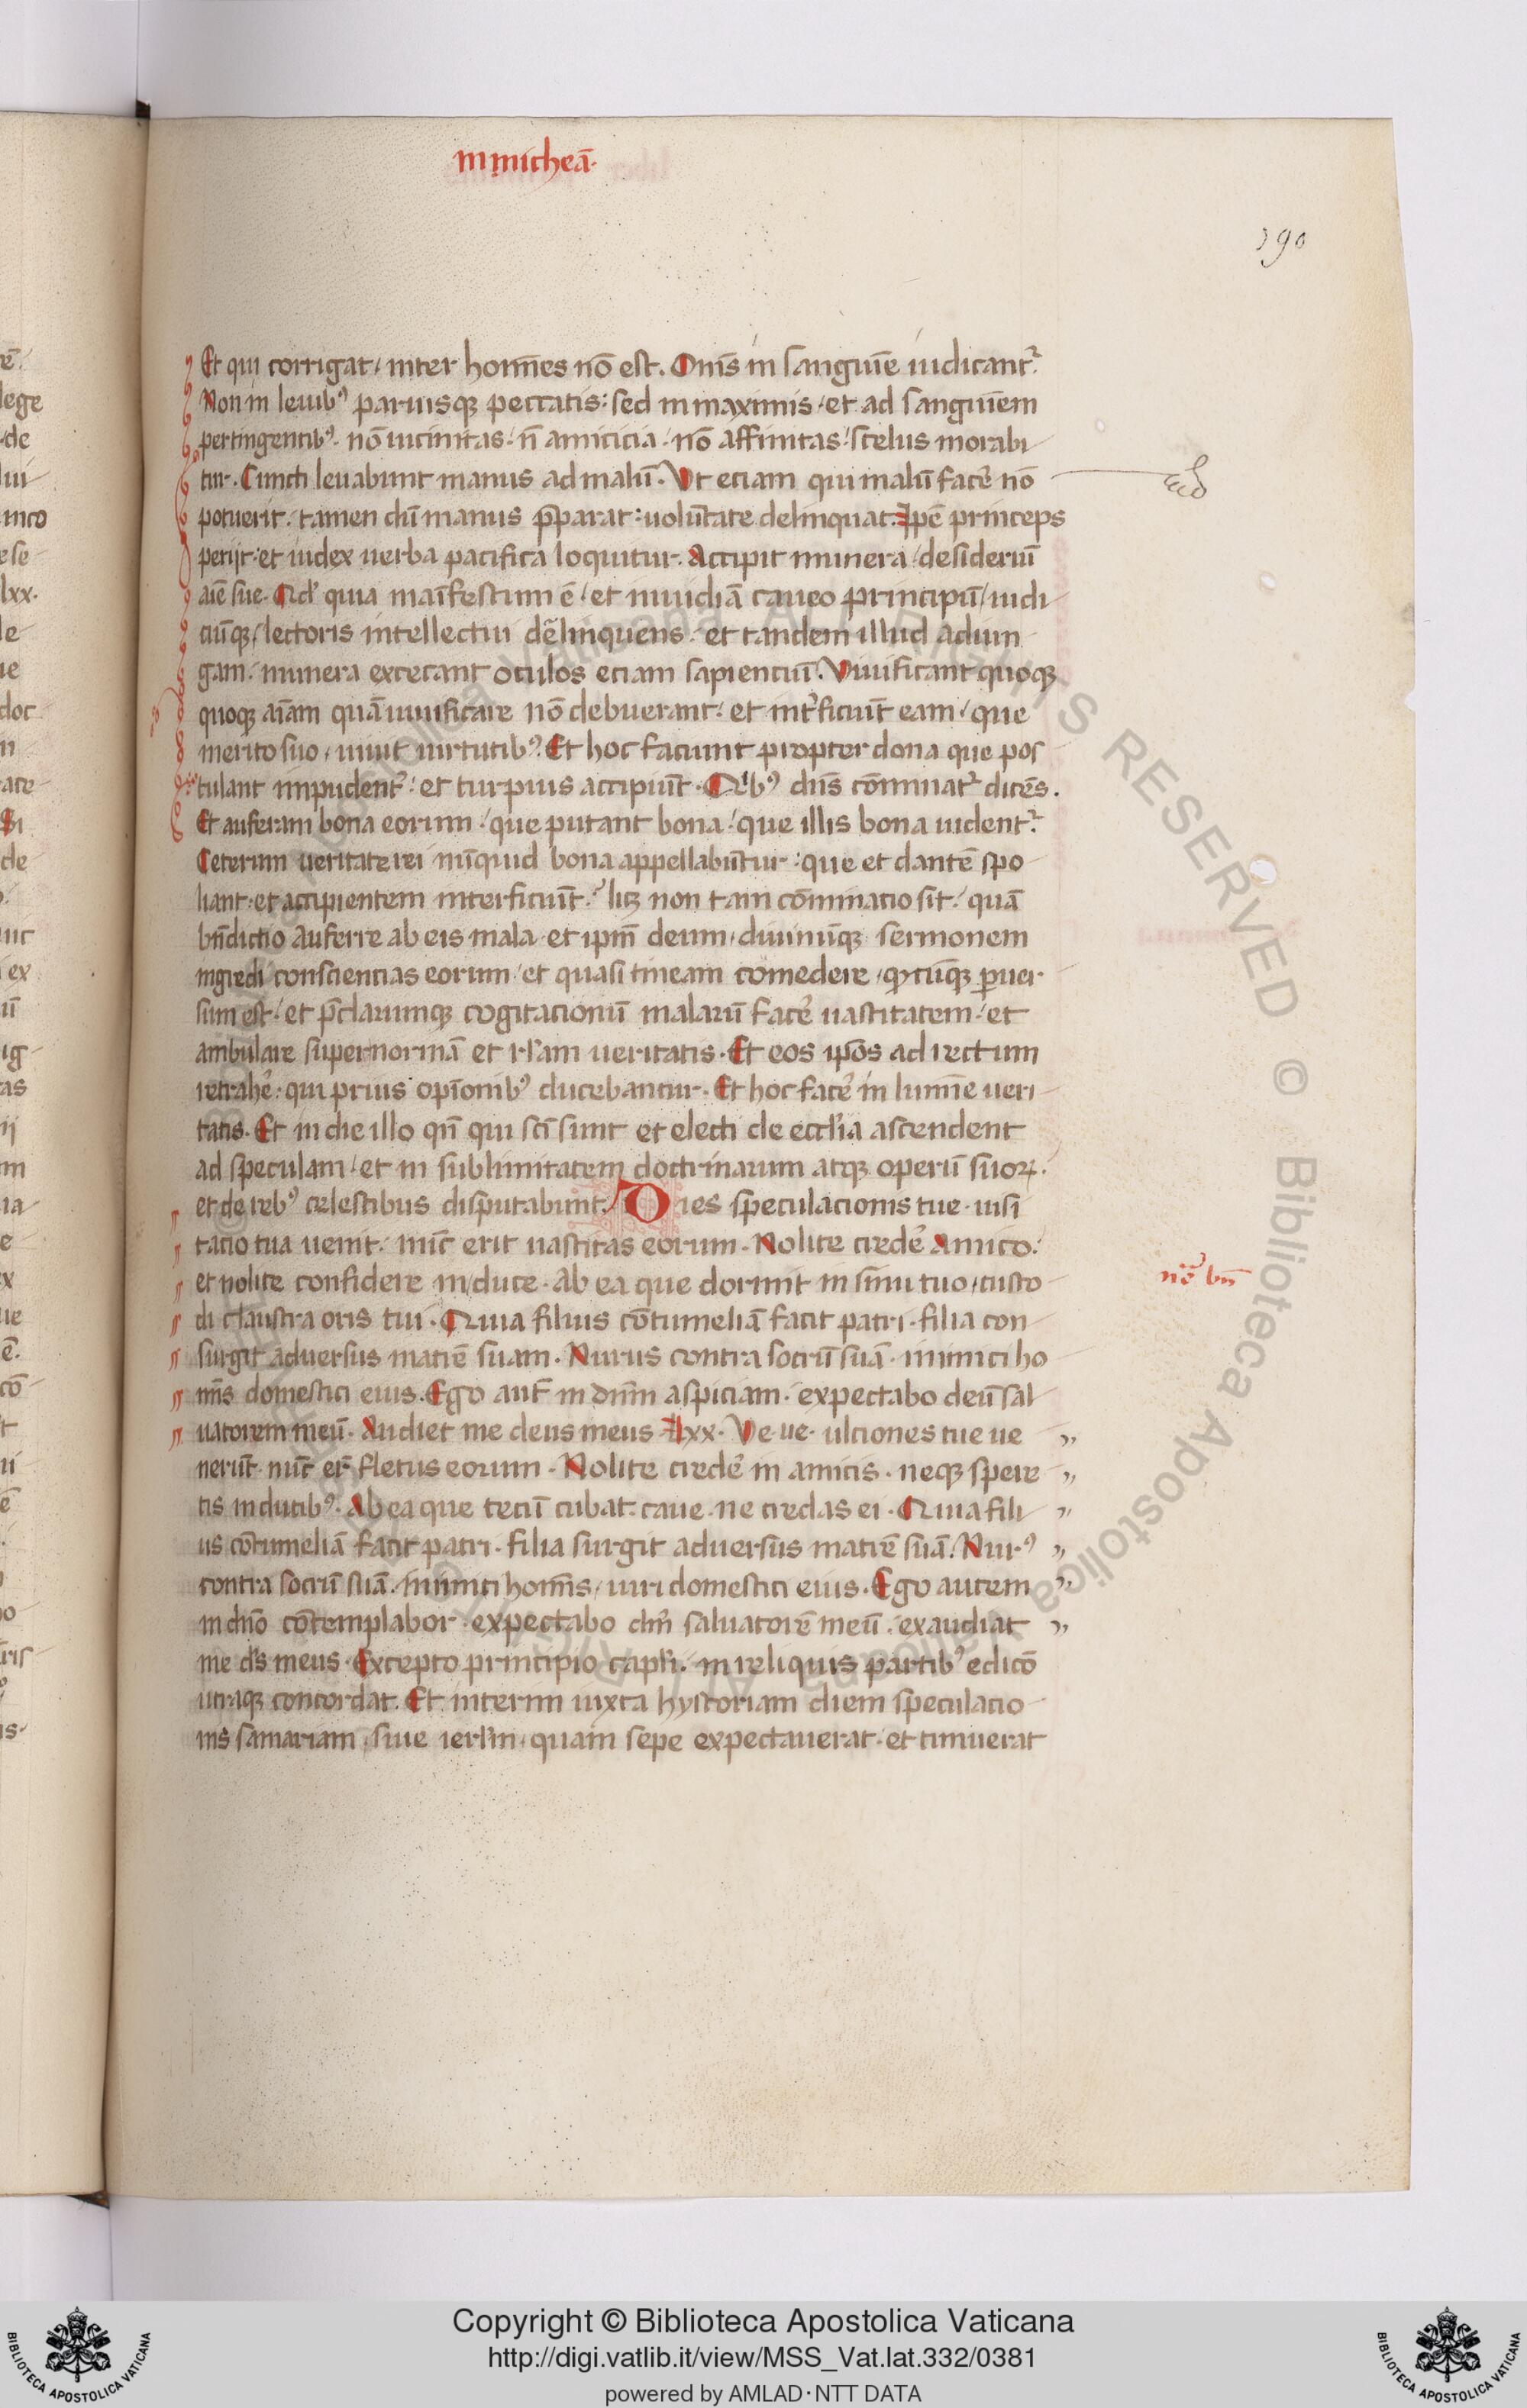 in micheā.
190
Et qui corrigat / inter homīes nō est. Om̄s in sanguīe iudicant᷑.
Non in leuib⁹ paruisqꝫ peccatis: sed in maximis / et ad sanguīem
pertingentib⁹. nō uicinitas / n̄ amicicia / nō affinitas / scelus morabi
tur. Cuncti leuabunt manus ad malū. Vt eciam qui malū facẻ nō
potuerit / tamen dū manus p̄parat: uolūtate delinquat. Ipē princeps
perijt: et iudex uerba pacifica loquitur. Accipit munera / desideriū
aīe sue. Qd' quia manīfestum ē / et inuidiā caueo principū / iudi
ciūqꝫ / lectoris intellectui de̅linquens / et tandem illud adiun
gam / munera excecant oculos eciam sapienciū. Viuificant quoqꝫ
quoqꝫ aīam quā uiuificare nō debuerant / et int᷑ficiūt eam / que
merito suo / uiuit uirtutib⁹. Et hoc faciunt propter dona que pos
tulant impudent᷑: et turpius accipiūt. Qⁱb⁹ dn̄s cōminat᷑ dicēs.
Et auferam bona eorum / que putant bona / que illis bona uident᷑.
Ceterum ueritate rei nūquid bona appellabūtur: que et dantē spo
liant: et accipientem interficiūt. lꝫ non tam cōminacio sit / quā
bn̄dictio auferre ab eis mala et ip̄m deum / diuinūqꝫ sermonem
ingredi consciencias eorum / et quasi tineam comedere / qͥcūqꝫ ꝑuer
sum est / et p̄claruımqꝫ cogitacionū malarū facẻ uastitatem / et
ambulare super normā et r̄lam ueritatis. Et eos ip̄os ad rectum
retrahẻ: qui prius opīonib⁹ ducebantur. Et hoc facẻ in lumīe ueri
tatis. Et in die illo qn̄ qui sc̄i sunt et electi de eccl'ia ascendent
ad speculam / et in sublimitatem doctrinarum atqꝫ operū suoꝝ.
et de reb⁹ celestibus disputabunt. Dies speculacionis tue. uisi
tacio tua uenit. nūc erit uastitas eorum. Nolite credẻ Amico:
et nolite confidere in duce. ab ea que dormit in sinu tuo / custo
di claustra oris tui. Quia filius cōtumeliā facit patri. filia con
surgit aduersus matrē suam. Nurus contra socrū suā. inimici ho
mīs domestici eius. Ego aut̄ in dn̄m aspiciam. expectabo deū sal
uatorem meū. Audiet me deus meus lxx. Ve ue. ulciones tue ue
nerūt. nūc er̄t fletus eorum. Nolite credẻ in amicis. neqꝫ spere
tis in ducib⁹. Ab ea que tecū cubat. caue. ne credas ei. Quia fili
us cōtumeliā facit patri. filia surgit aduersus matrē suā. Nur⁹
contra socrū suā. inimici homīs / uiri domestici eius. Ego autem
in dn̄o cōtemplabor. expectabo dm̄ saluatorē meū. exaudiat
me ds̄ meus. Excepto principio capl'i. in reliquis partib⁹ edicō
utraqꝫ concordat. Et interim iuxta hystoriam diem speculacio
nis samariam / siue ierl'm / quam sepe expectauerat. et timuerat
nō bn̄
Copyright © Biblioteca Apostolica Vaticana
http://digi.vatlib.it/view/MSS_Vat.lat.332/0381
powered by AMLAD·NTT DATA
BIBLIOTECA APOSTOLICA VATICANA
BIBLIOTECA APOSTOLICA VATICANA